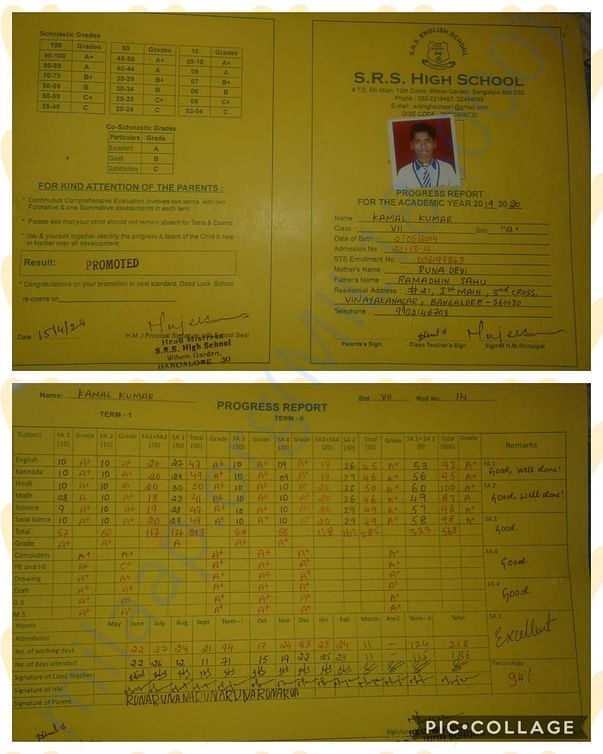 Scholastic Grades
100 Grades 50 Grades 10 Grades
90-100 A+ 45-50 A+ 09-10 A+
80-89 A 40-44 A 08 A
70-79 B+ 35-39 B+ 07 B+
60-69 B 30-34 B 06 B
50-59 C+ 25-29 C+ 05 C+
35-49 C 20-24 C 03-04 C
Co-Scholastic Grades
Particulars Grade
Excellent A
Good B
Satisfactory C
FOR KIND ATTENTION OF THE PARENTS :
* Continuous Comprehensive Evaluation involves two terms, with two
Formative & one Summative assessments in each term.
* Please see that your child should not remain absent for Tests & Exams
* We & yourself together identify the progress & talent of the Child & help
in his/her over all development.
Result: PROMOTED
* Congratulations on your promotion to next standard, Good Luck, School
re-opens on
Date : 15/4/24
H.M. / Principal School Seal
Head Mistress
S.R.S. High School
Wilson Garden,
BANGALORE 30
S.R.S. ENGLISH SCHOOL
S.R.S. HIGH SCHOOL
# 7/3, 5th Main, 12th Cross, Wilson Garden, Bangalore-560 030.
Phone : 080-2219487, 22484699
E-mail : srshighschool1@gmail.com
DISE CODE
PROGRESS REPORT
FOR THE ACADEMIC YEAR 2019 2020
Name : KAMAL KUMAR
Class : VII Sec. "A"
Date of Birth : 2/05/2004
Admission No
STS Enrollment No : 056199863
Mother's Name : RUNA DEVI
Father's Name : RAMADHIN SAHU
Residential Address : # 21, Ist MAIN, 3rd CROSS,
VINAYAKANAGAR, BANGALORE - 560030
Telephone : 9902146708
Parents's Sign. Class Teacher's Sign Sign of H.M./Principal
Name: KAMAL KUMAR Std VII Roll No. 14
PROGRESS REPORT
TERM - 1 TERM - II
Subject FA 1 (10) Grade FA 2 (10) Grade FA1+FA2 (20) SA 1 (30) Total (50) Grade FA 3 (10) Grade FA 4 (10) Grade FA3+FA4 (20) SA 2 (30) Total (50) Grade SA 1+ SA 2 Total (100) Grade Remarks
English 10 A+ 10 A+ 20 27 47 A+ 10 A+ 09 A+ 19 26 45 A+ 53 92 A+
Kannada 10 A+ 10 A+ 20 29 49 A+ 10 A+ 09 A+ 19 27 46 A+ 56 95 A+
Hindi 10 A+ 10 A+ 20 30 50 A+ 10 A+ 10 A+ 20 30 50 A+ 60 100 A+
Math 08 A 10 A+ 18 23 41 A+ 10 A+ 10 A+ 20 26 46 A+ 49 87 A
Science 9 A+ 10 A+ 19 28 47 A+ 10 A+ 10 A+ 20 29 49 A+ 57 96 A+
Social Science 10 A+ 10 A+ 20 29 49 A+ 10 A+ 10 20 29 49 A+ 58 98 A+
Total 57 60 117 166 283 60 58 118 167 285 333 568
Grade A+ A+ A+
Computers A+ A+ A+ A+ A+
PE and HE A+ C+ A+ A+ A+
Drawing A+ A+ A+ A+ A+
Craft A+ A+ A+ A+ A+
G.K. A+ A+ A+ A+ A+
M.S. A+ A+ A+ A+ A+
FA 1 Good, well done!
FA 2 Good, well done!
SA 1 Good.
FA 3 Good
FA 4 Good.
SA 2 Excellent
Percentage 94%
Month May June July Aug Sept Term-I Oct Nov Dec Jan Feb March Term - II Total
Attendance
No. of working days 22 27 24 21 94 17 24 23 25 24 11 - 124 218
No. of days attended 22 26 12 11 71 15 19 22 25 23 11 - 115 186
Signature of Class Teacher
Signature of HM
Signature of Parent RUNA RUNA RUNA RUNA RUNA RUNA
PIC•COLLAGE